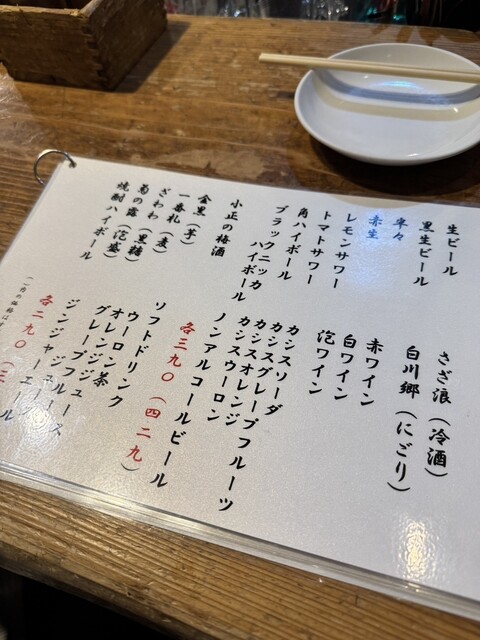 生ビール
黒生ビール
赤生
レモンサワー
トマトサワー
角ハイボール
ブラックニッカ
ハイボール
小正の梅酒
金黒(芋)
一番札(麦)
ざわわ(黒糖)
菊の露(泡盛)
焼酎ハイボール
さざ浪(冷酒)
白川郷(にごり)
赤ワイン
白ワイン
泡ワイン
カシスソーダ
カシスグレープフルーツ
カシスオレンジ
カシスウーロン
ノンアルコールビール
各三九〇(四二九)
ソフトドリンク
ウーロン茶
オレンジジュース
グレープジュース
ジンジャーエール
各二九〇(三